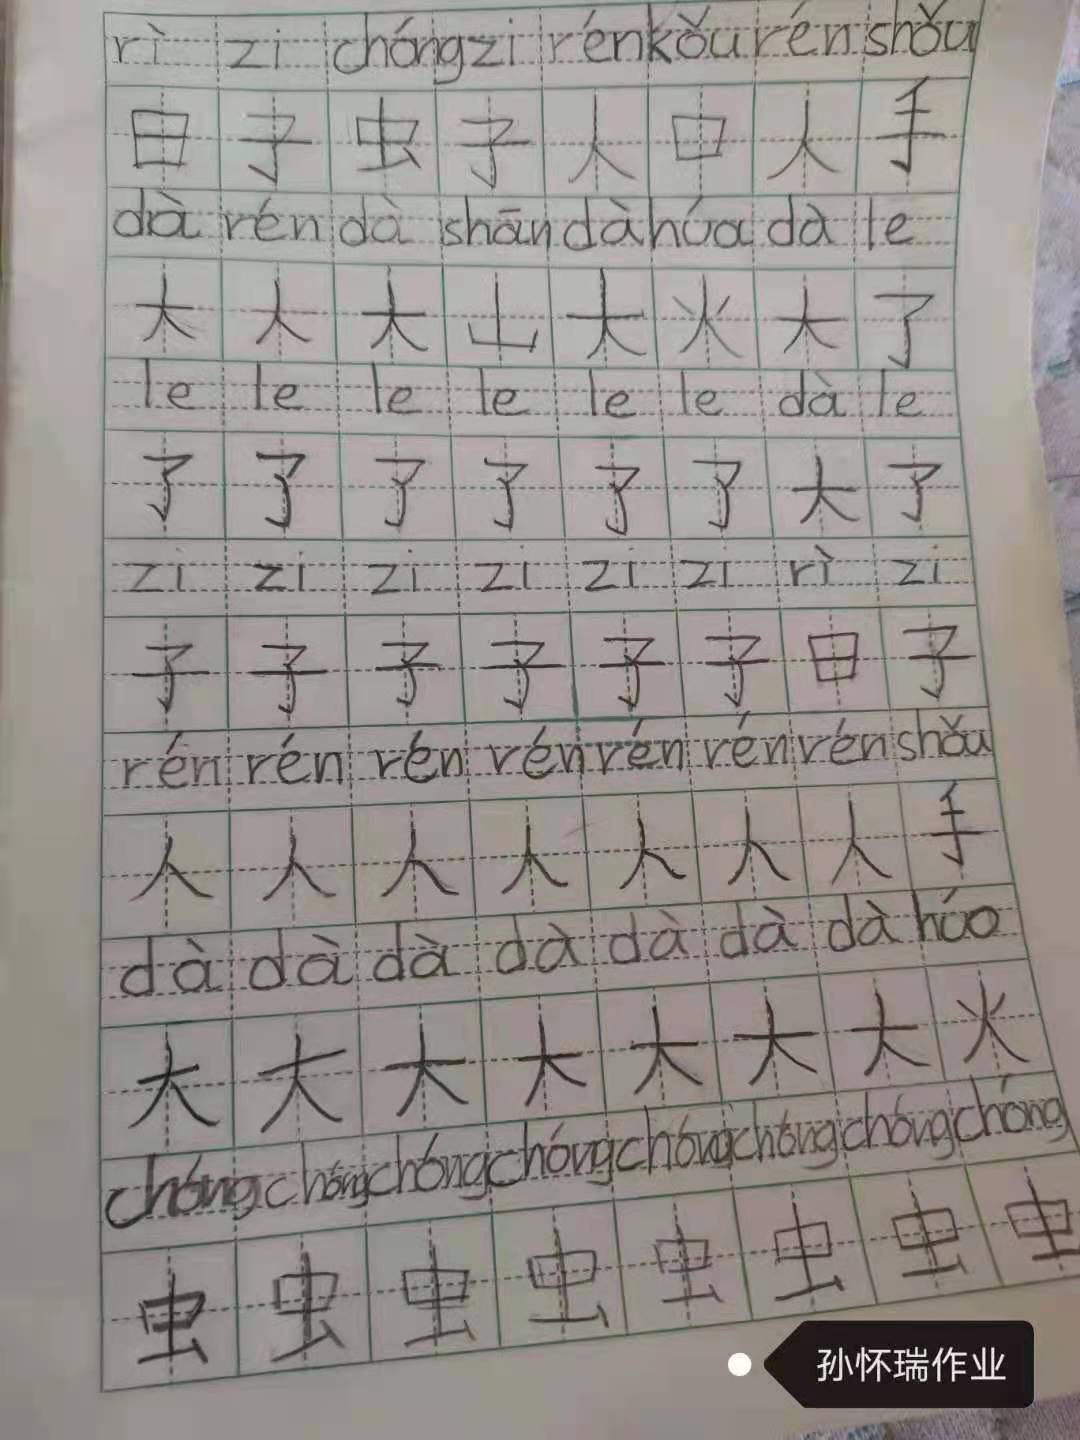 rì zi chóng zi rén kǒu rén shǒu
日 子 虫 子 人 口 人 手
dà rén dà shān dà húa dà le
大 人 大 山 大 火 大 了
le le le le le le dà le
了 了 了 了 了 了 大 了
zi zi zi zi zi zi rì zi
子 子 子 子 子 子 日 子
rén rén rén rén rén rén rén shǒu
人 人 人 人 人 人 人 手
dà dà dà dà dà dà dà húo
大 大 大 大 大 大 大 火
chóng chóng chóng chóng chóng chóng chóng chóng
虫 虫 虫 虫 虫 虫 虫 虫
孙怀瑞作业